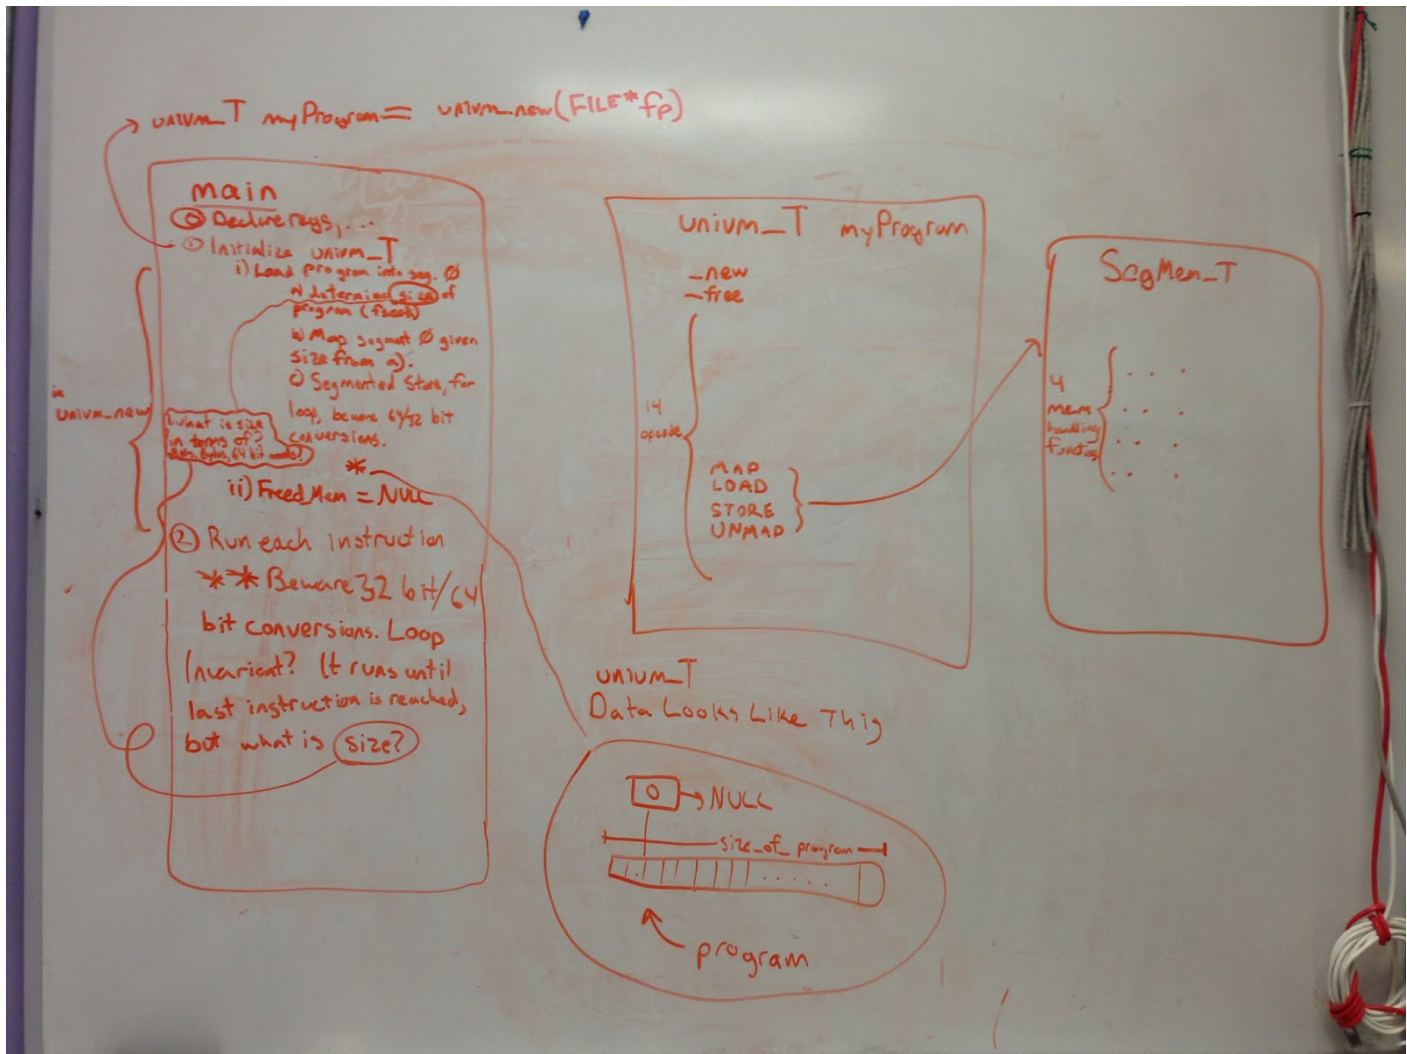 univm_T myProgram = univm_new(FILE* fp)
main
⓪ Declare regs, ...
① Initialize univm_T
i) Load program into seg. Ø
a) determine size of
program (fseek)
b) Map segment Ø given
size from a).
c) Segmented Store, for
loop, beware 64/32 bit
conversions.
*
in
univm_new
What is size
in terms of?
Bits, bytes, 64 bit words?
ii) Freed_Mem = NULL
② Run each instruction
** Beware 32 bit/64
bit conversions. Loop
Invarient? It runs until
last instruction is reached,
but what is size?
univm_T myProgram
_new
_free
14
opcode
MAP
LOAD
STORE
UNMAP
SegMem_T
4
mem
handling
functions
univm_T
Data Looks Like This
0 → NULL
size_of_program
program